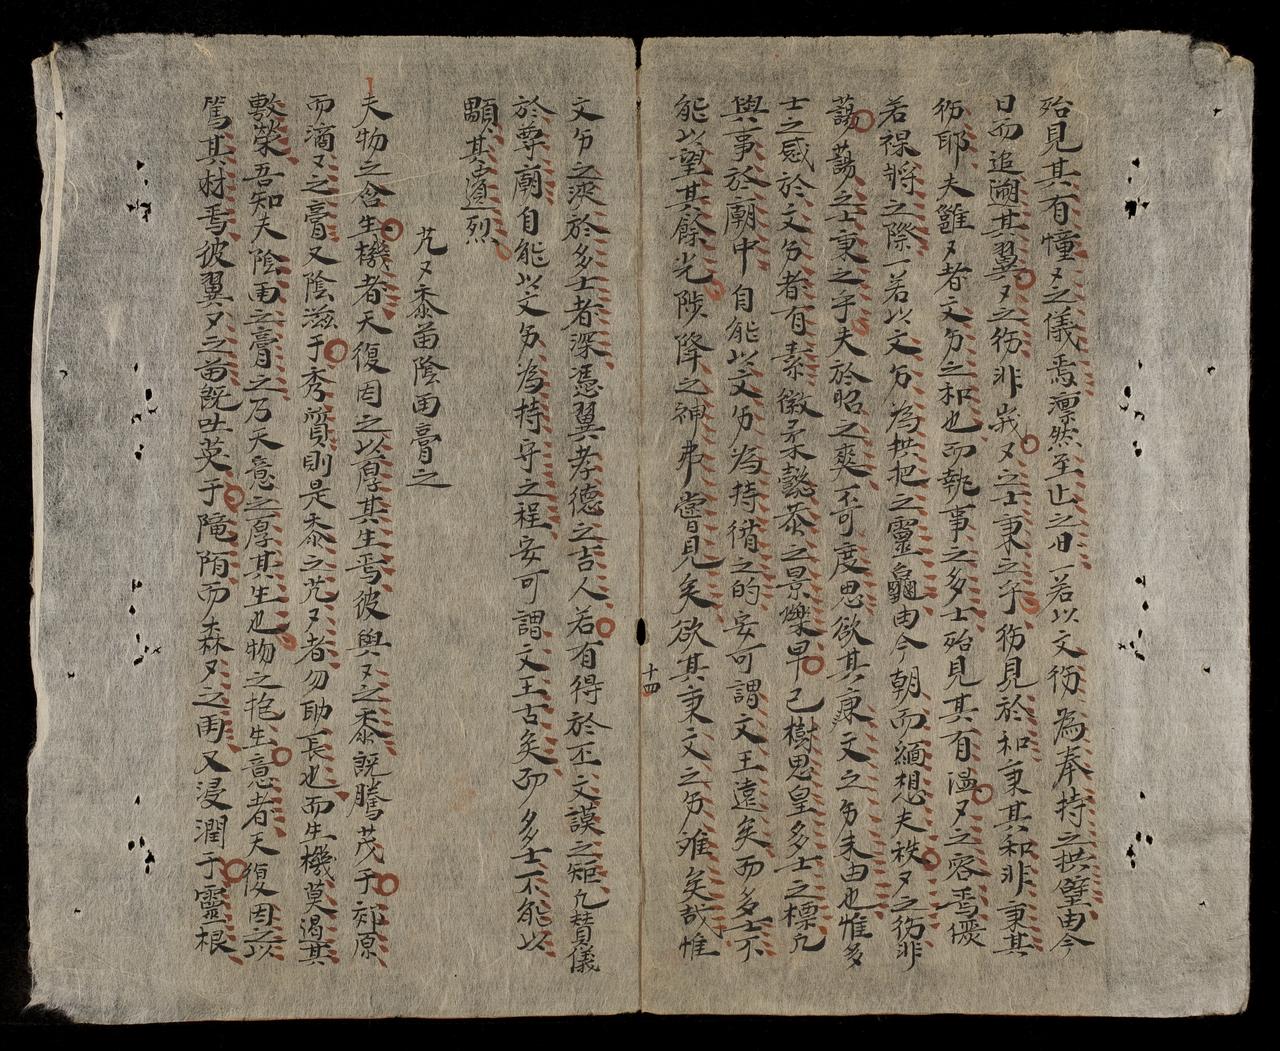 殆見其有憧〻之儀焉凛然至止之日一若以文徳為奉持之拱璧由今
日而追溯其翼〻之徳非峩〻之士秉之乎徳見於和秉其和非秉其
徳耶夫雝〻者文徳之和也而執事之多士殆見其有温〻之容焉優
若祼將之際一若以文徳為拱把之靈龜由今朝而緬想夫秩〻之徳非
藹藹之士秉之乎夫於昭之爽不可度思欲其康文之徳未由也惟多
士之感於文徳者有素徽柔懿恭之景爍早已樹思皇多士之標凢
與事於廟中自能以文徳為持循之的安可謂文王遠矣而多士不
能以望其餘光陟降之神弗嘗見矣欲其秉文之徳难矣哉惟
十四
文徳之浹於多士者深憑翼孝德之吉人若有得於丕文謨之矩凢賛儀
於尊廟自能以文徳為持守之程安可謂文王古矣而多士不能以
顯其遺烈
芃〻黍苗陰雨膏之
夫物之含生機者天復因之以厚其生焉彼與〻之黍既騰茂于郊原
而滴〻之膏又陰滋于秀質則是黍之芃〻者勿助長也而生機莫遏其
敷榮吾知夫陰雨之膏之乃天意之厚其生也物之抱生意者天復因之以
篤其材焉彼翼〻之苗既吐英于隴陌而森〻之雨又浸潤于靈根